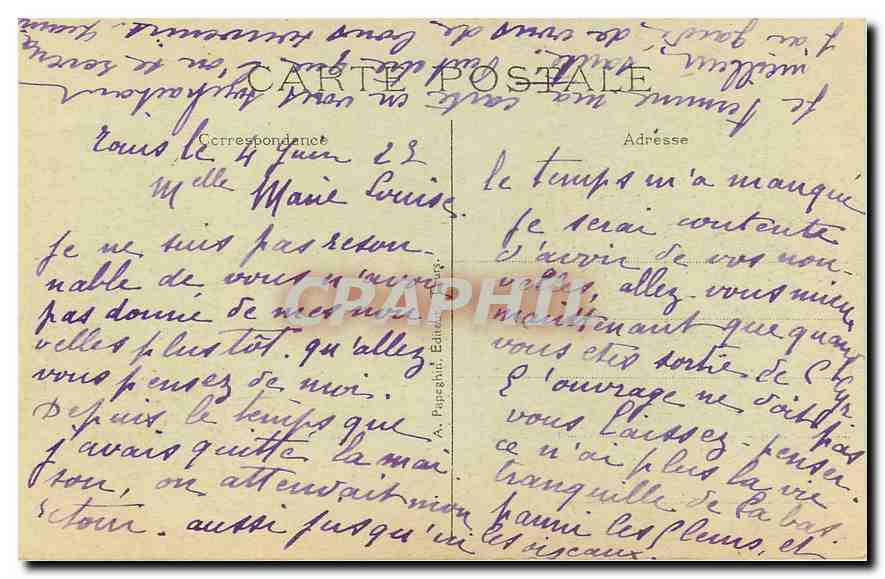 CARTE POSTALE
Correspondance
Adresse
le 4 Juin 23
Melle Marie Louise,
Je ne suis pas reson-
nable de vous n'avoir
pas donné de mes nou
velles plus tôt. qu'allez
vous pensez de moi.
Depuis le temps que
j'avais quitté la mai
son, on attendait mon
retour. aussi jusqu'ici
A. Papeghin, Éditeur, Tours.
le temps m'a manqué
Je serai contente
d'avoir de vos nou-
velles, allez-vous mieux
maintenant que quand
vous etes sortie de
L'ouvrage ne doit pas
vous laissez-penser.
ce n'ai plus la vie
tranquille de la bas.
parmi les fleurs, et
les oiseaux.
Je termine ma carte en vous souhaitant
meilleur santé
j'ai gardé de vous de bons souvenirs.
CRAPHIL